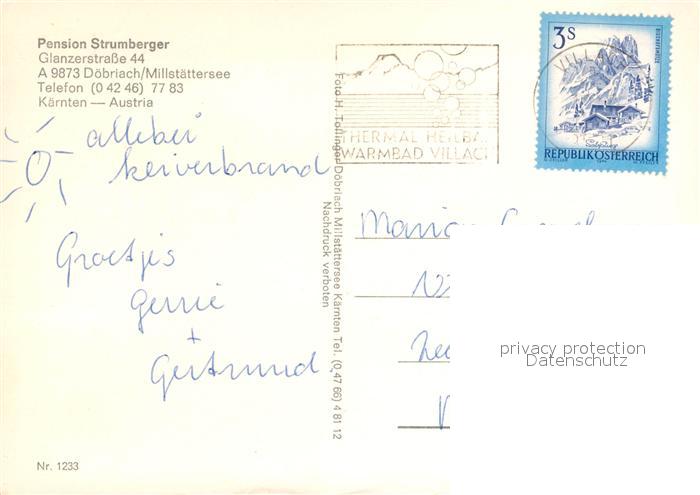 Pension Strumberger
Glanzerstraße 44
A 9873 Döbriach/Millstättersee
Telefon (0 42 46) 77 83
Kärnten — Austria
allebei
keiverbrand
Groetjes
Gerrie
+
Geertruud
Nr. 1233
Foto H. Tollinger Döbriach Millstättersee Kärnten Tel. (0 47 66) 4 81 12
Nachdruck verboten
THERMAL HEILBA
WARMBAD VILLAC
VILLAC
3S
REPUBLIK ÖSTERREICH
privacy protection
Datenschutz